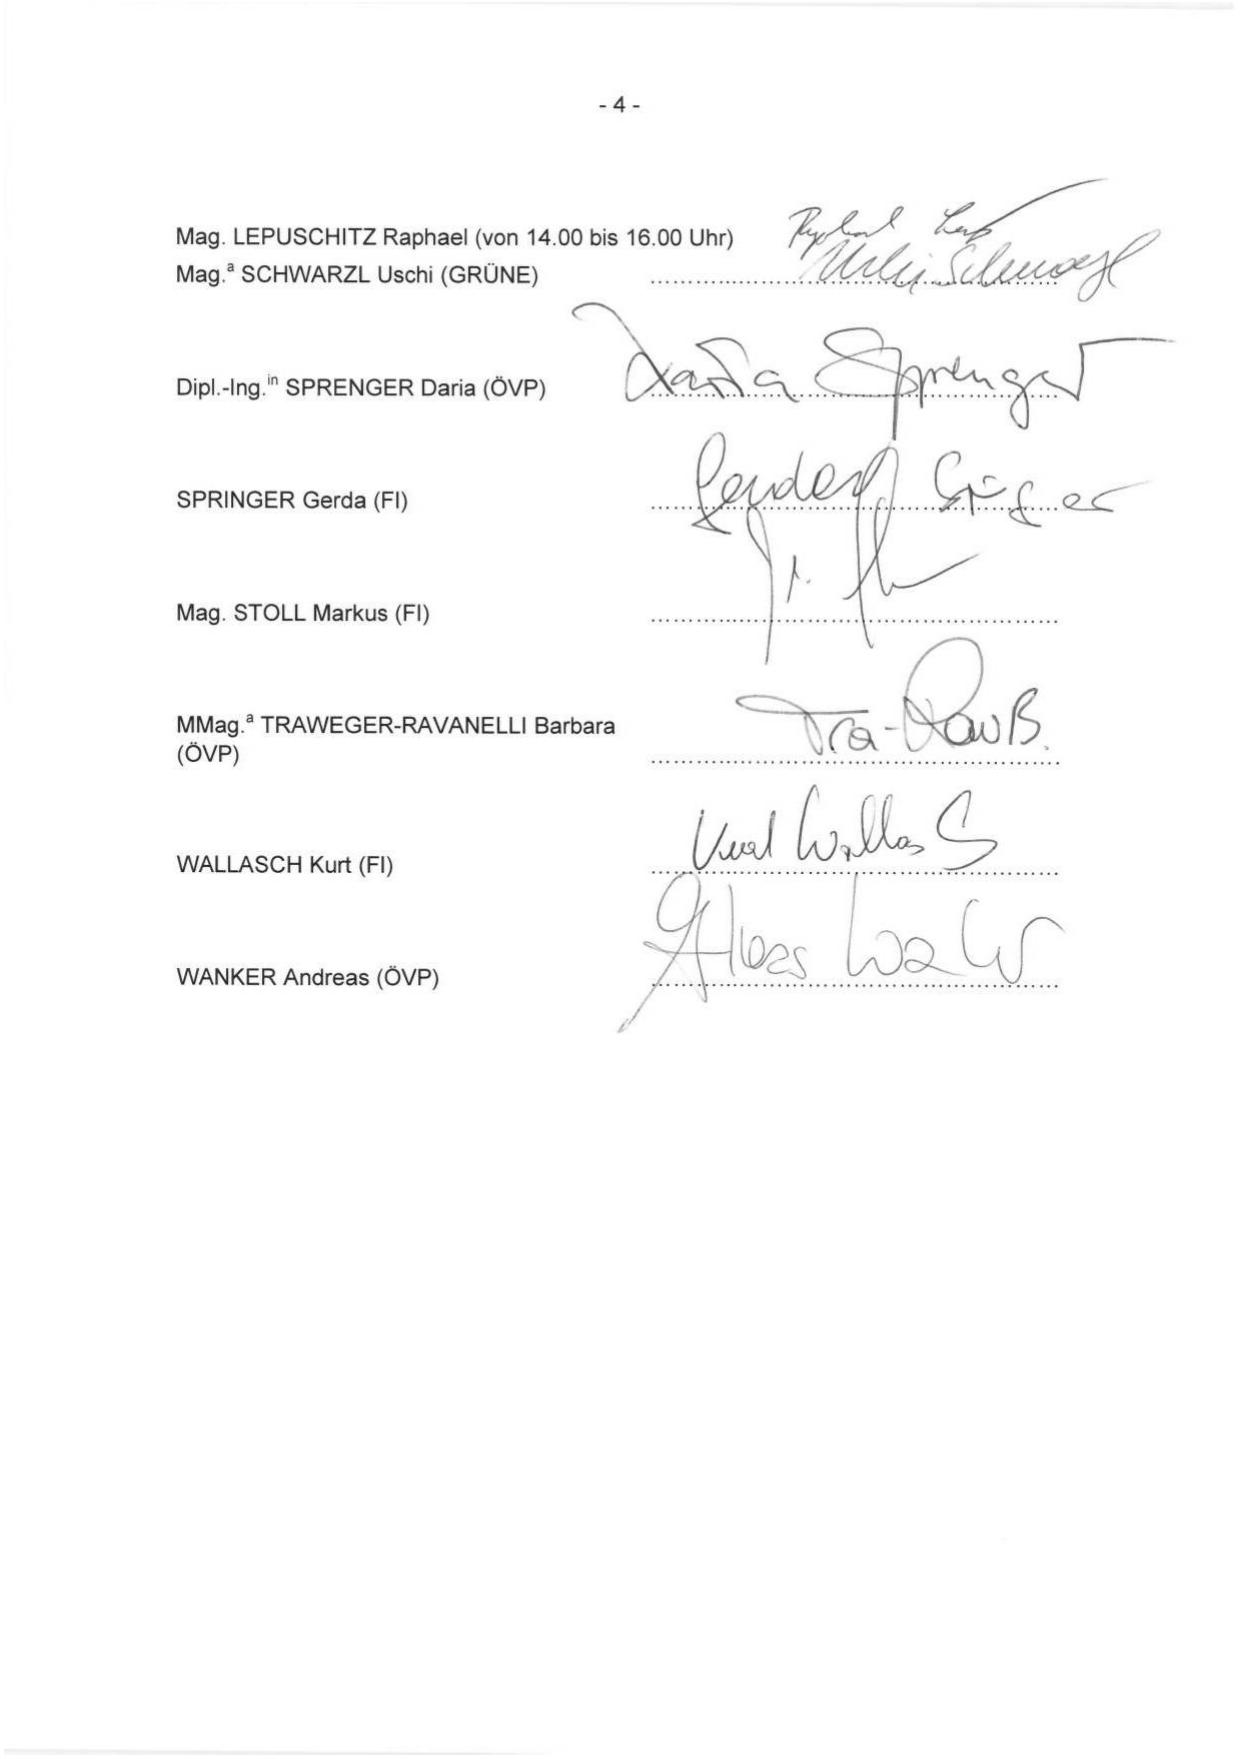 - 4 -
Mag. LEPUSCHITZ Raphael (von 14.00 bis 16.00 Uhr)
Mag.ª SCHWARZL Uschi (GRÜNE)
Dipl.-Ing.ⁱⁿ SPRENGER Daria (ÖVP) Daria Sprenger
SPRINGER Gerda (FI)
Mag. STOLL Markus (FI)
MMag.ª TRAWEGER-RAVANELLI Barbara
(ÖVP) Tra-RavB.
WALLASCH Kurt (FI) Kurt Wallas
WANKER Andreas (ÖVP)